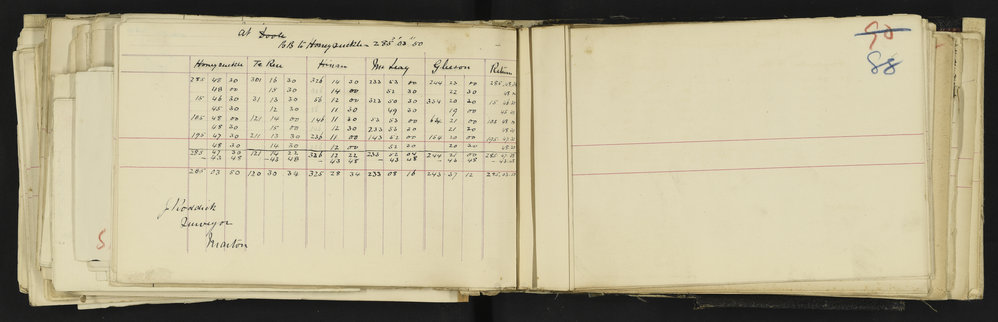 At Doole
BB to Honeysuckle - 285° 03' 50
Honeysuckle To Reu Hinau McLeay Gleeson Return
285 48 30 301 15 30 326 14 30 233 53 00 244 23 00 285
48 00 15 30 14 00 52 30 22 30
15 46 30 31 13 30 56 12 00 323 50 30 334 20 30 15
45 30 12 30 11 30 49 30 19 00
105 48 00 121 14 00 146 11 30 53 53 00 64 21 00 105
48 30 15 00 12 30 233 53 21 30
195 47 30 211 13 30 236 11 00 143 52 00 154 20 00 195
48 30 14 30 12 00 52 30 20 30
285 47 30 121 14 22 326 12 22 233 52 04 244 21 00 285
- 43 48 - 43 48 - 43 48 - 43 48 - 43 48
285 03 50 120 30 34 325 28 34 233 08 16 243 37 12 285
J Roddick
Surveyor
Marton
88